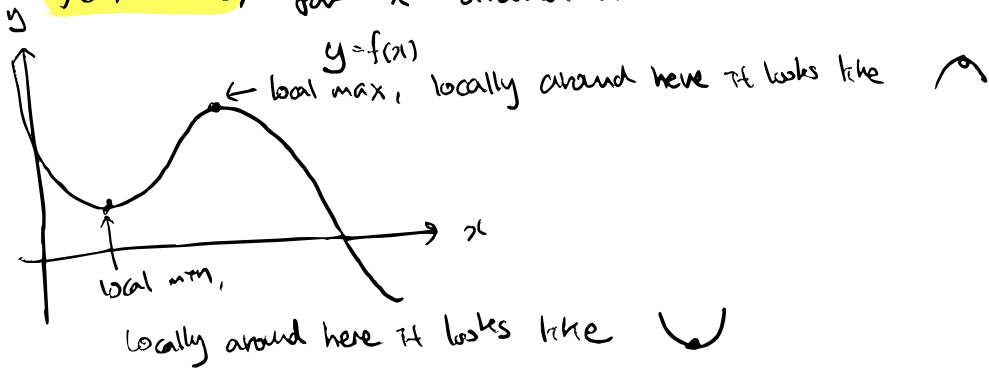 for x
y
y = f(x)
← local max, locally around here it looks like
x
local min,
locally around here it looks like